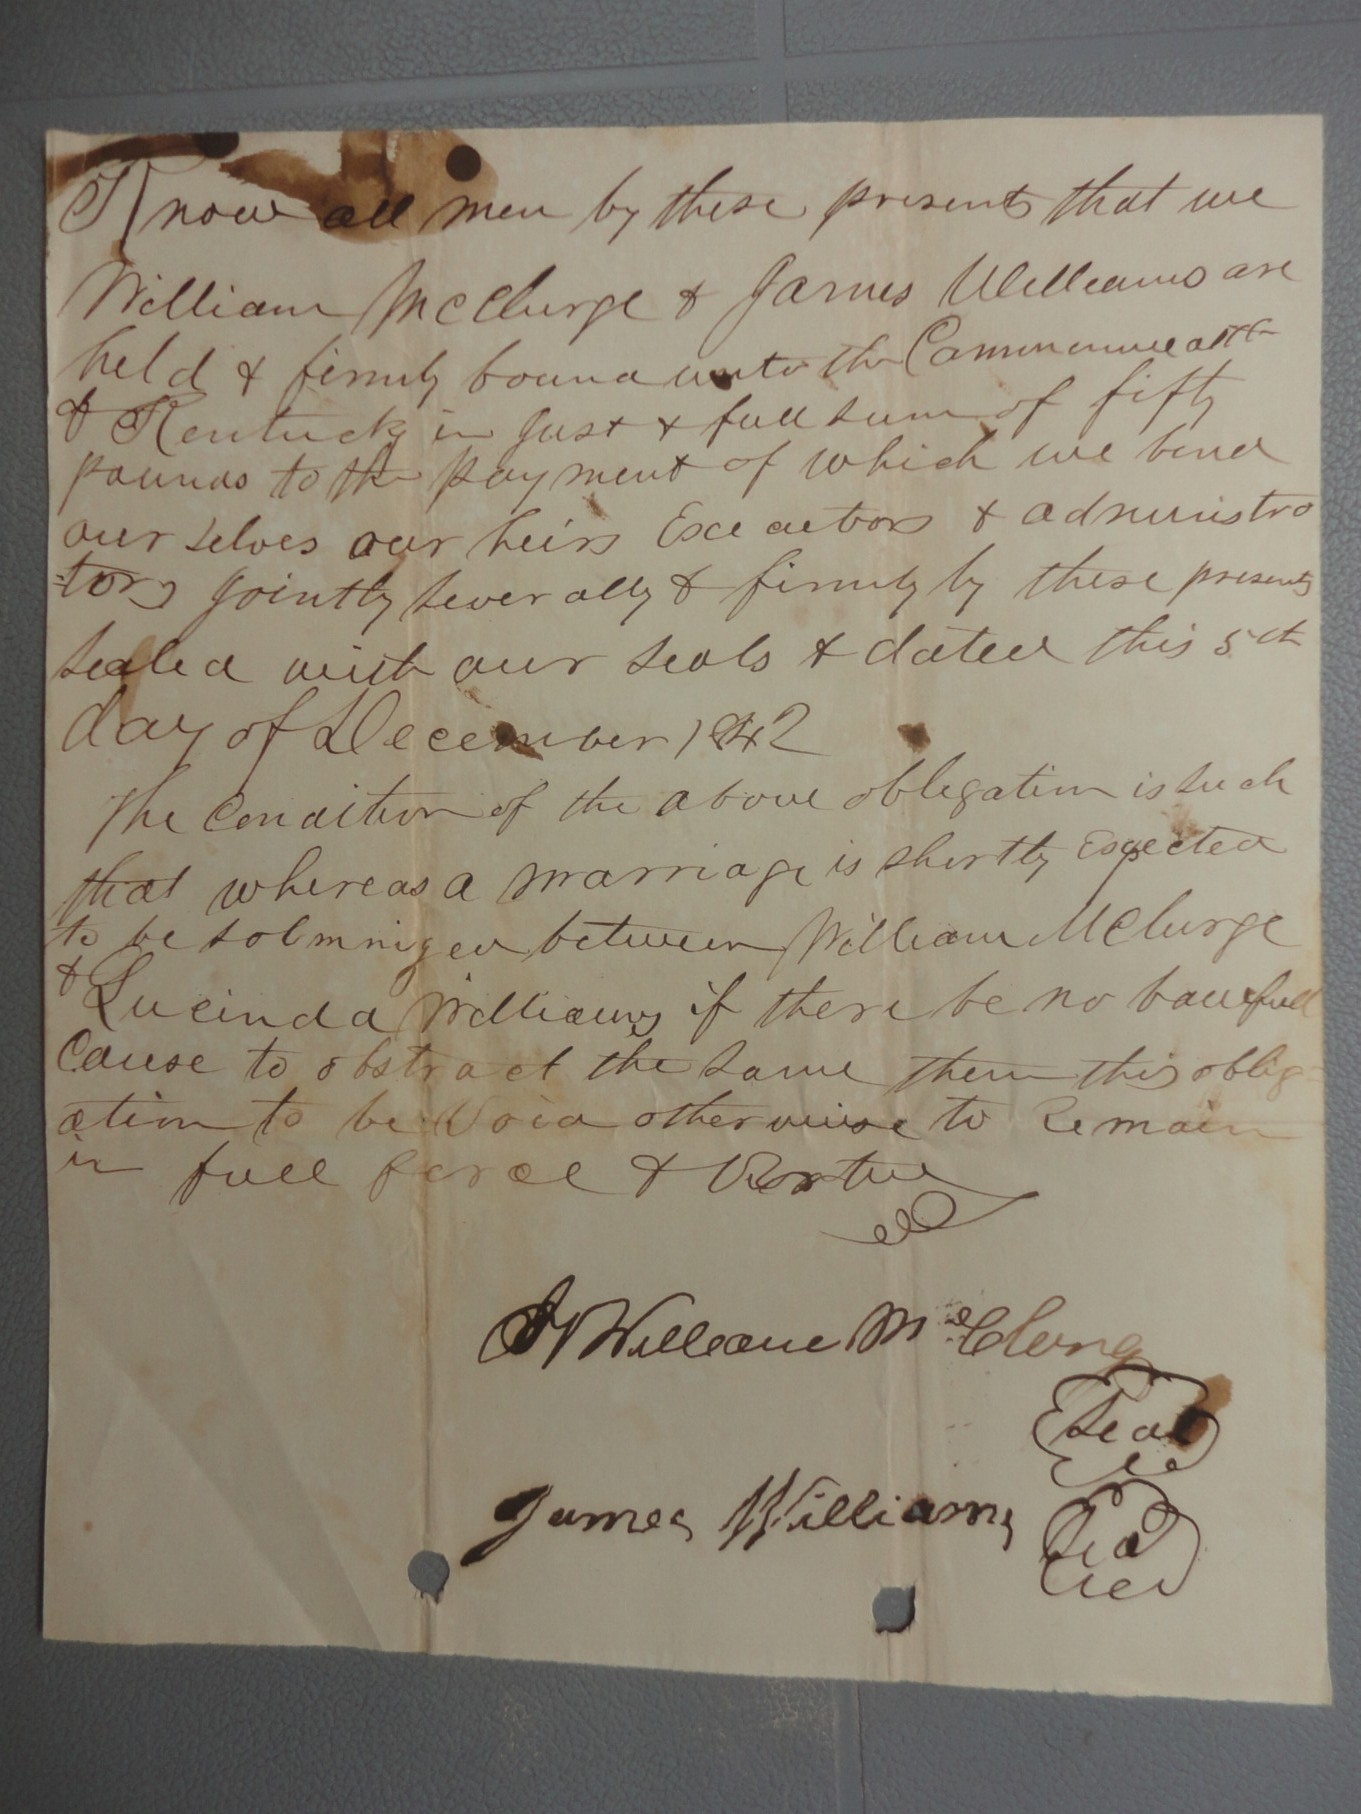 Know all men by these presents that we
William McClurge & James Williams are
held & firmly bound unto the Commonwealth
of Kentucky in Just & full sum of fifty
pounds to the payment of which we bind
our selves our heirs Executors & administra
=tors Jointly severally & firmly by these presents
sealed with our seals & dated this 5th
day of December 1842
The Condition of the above obligation is such
that whereas a marriage is shortly Expected
to be solmnized between William McClurge
& Lucinda Williams if there be no
Cause to obstract the same then this oblig=
ation to be Void otherwise to Remain
in full force & Virtue
William McClong
Seal
James Williams
Seal